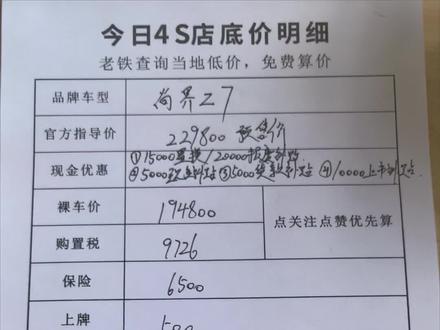 今日4S店底价明细
老铁查询当地低价，免费算价
品牌车型 尚界Z7
官方指导价 229800 预售价
现金优惠 ①15000置换/20000报废补贴
②5000现金补贴 ③5000选装补贴 ④10000上市补贴
裸车价 194800 点关注点赞优先算
购置税 9726
保险 6500
上牌 500